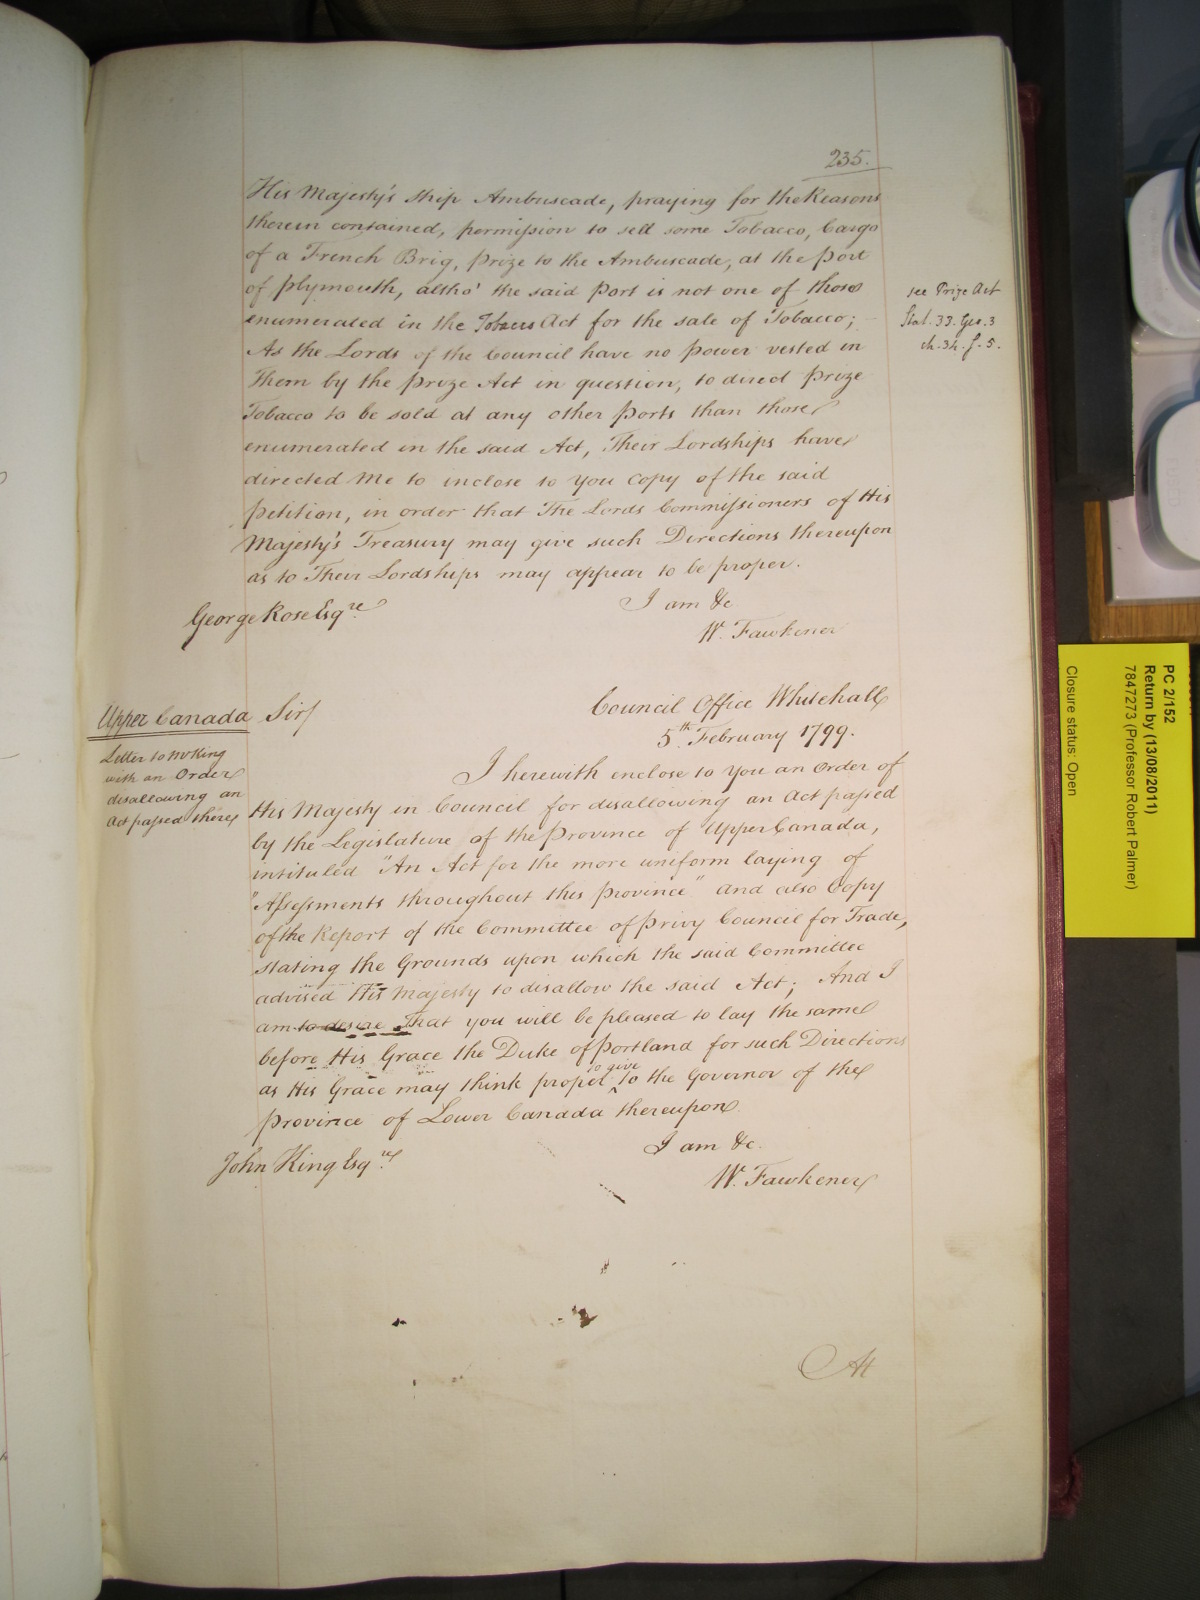 235.
His Majesty's Ship Ambuscade, praying for the Reasons
therein contained, permission to sell some Tobacco, Cargo
of a French Brig, prize to the Ambuscade, at the Port
of Plymouth, altho' the said Port is not one of those
enumerated in the Act for the sale of Tobacco;
As the Lords of the Council have no power vested in
Them by the Prize Act in question, to direct Prize
Tobacco to be sold at any other Ports than those
enumerated in the said Act, Their Lordships have
directed Me to inclose to You Copy of the said
Petition, in order that The Lords Commissioners of His
Majesty's Treasury may give such Directions thereupon
as to Their Lordships may appear to be proper.
see Prize Act
Stat. 33. Geo. 3
ch. 34. s. 5.
I am &c
George Rose Esqre.
W. Fawkener
Upper Canada
Letter to Mr King
with an Order
disallowing an
Act passed there
Sir/
Council Office Whitehall
5th February 1799.
I herewith enclose to You an Order of
His Majesty in Council for disallowing an Act passed
by the Legislature of the Province of Upper Canada,
intituled "An Act for the more uniform laying of
"Assessments throughout this Province" and also Copy
of the Report of the Committee of Privy Council for Trade,
stating the Grounds upon which the said Committee
advised His Majesty to disallow the said Act; And I
am to desire That you will be pleased to lay the same
before His Grace the Duke of Portland for such Directions
as His Grace may think proper to give to the Governor of the
Province of Lower Canada ^ thereupon
I am &c.
John King Esqre.
W. Fawkener
At
PC 2/152
Return by (13/08/2011)
7847273 (Professor Robert Palmer)
Closure status: Open